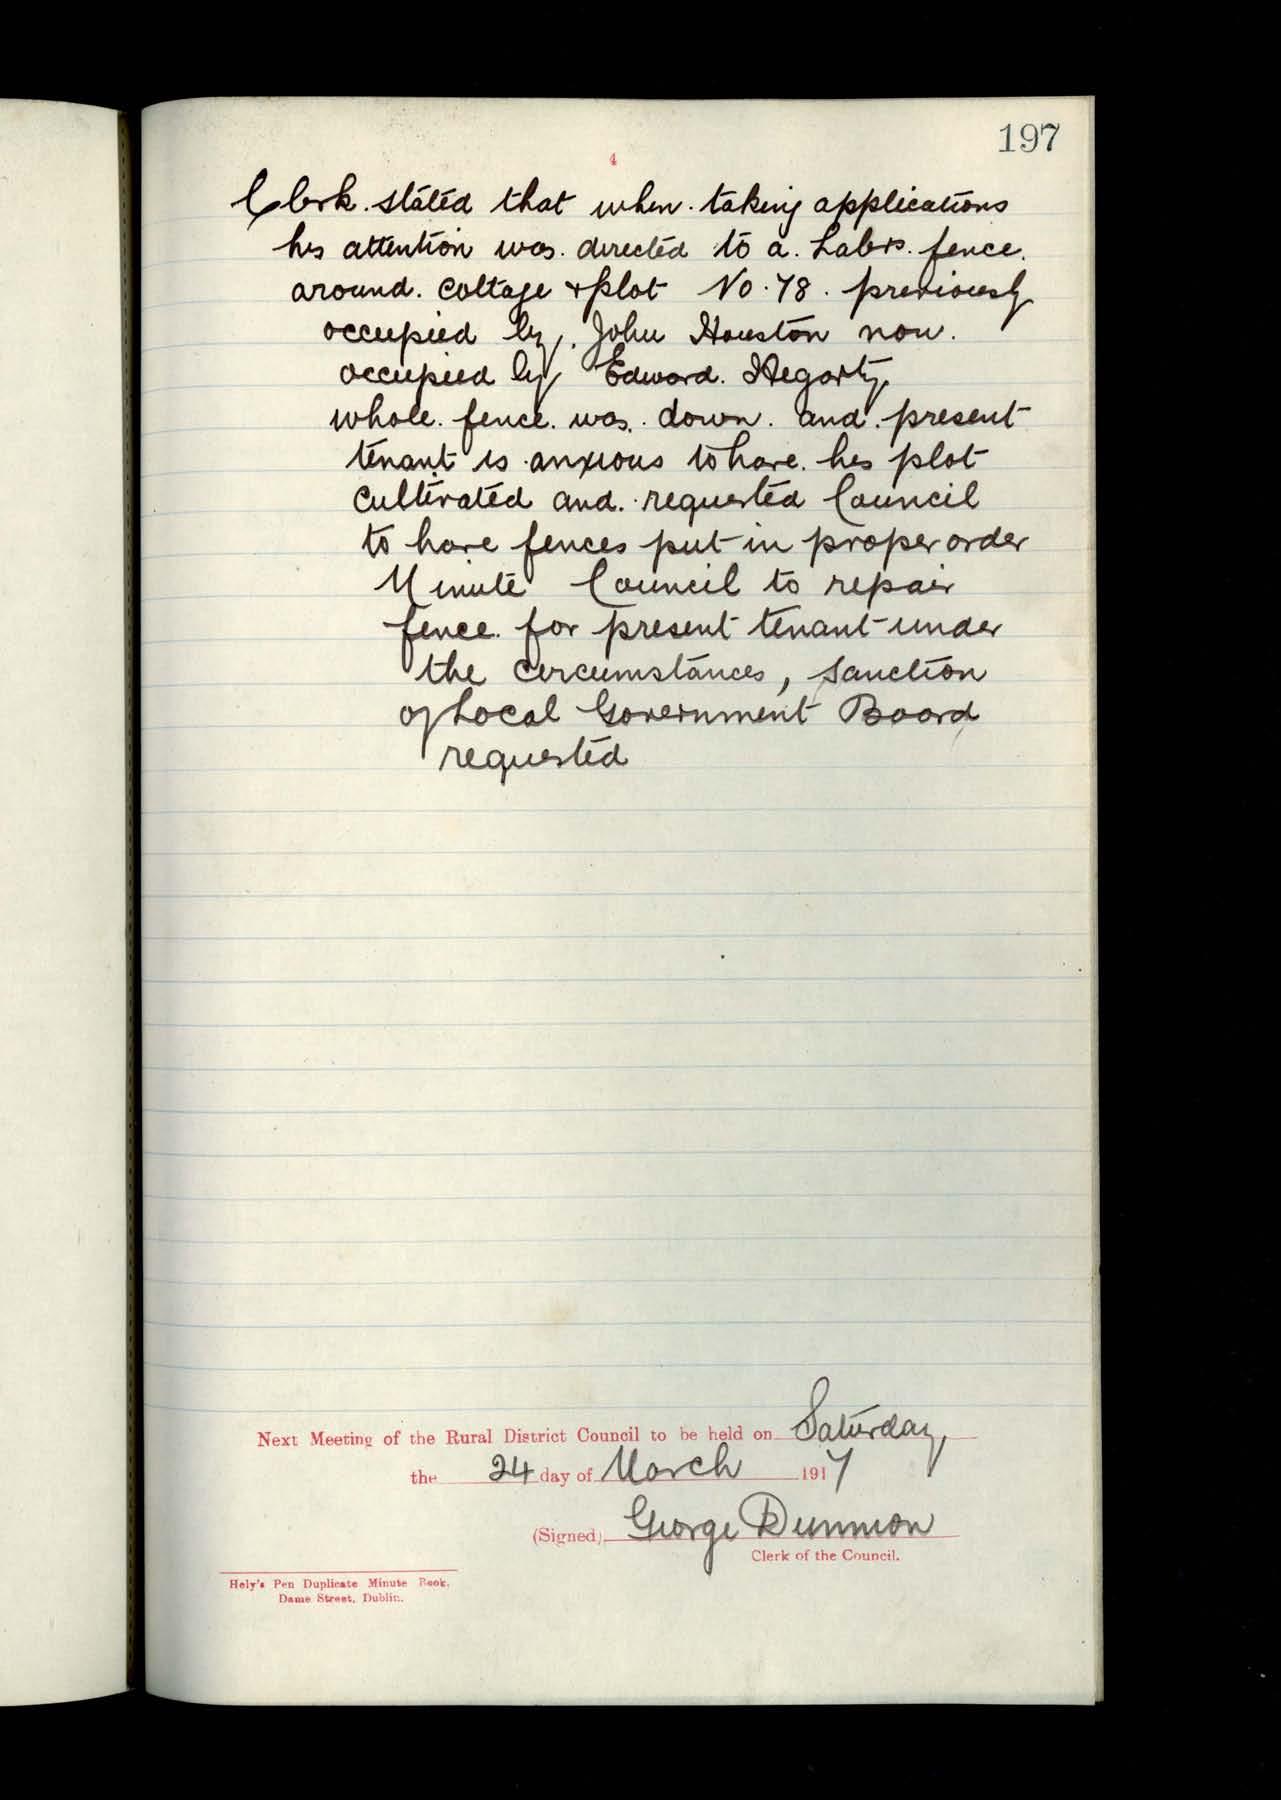 197
4
Clerk stated that when taking applications
his attention was directed to a Labrs. fence
around cottage + plot No. 78 previously
occupied by John Houston now
occupied by Edward Hegarty
whole fence was down and present
tenant is anxious to have his plot
cultivated and requested Council
to have fences put in proper order
Minute Council to repair
fence for present tenant under
the circumstances, sanction
of Local Government Board
requested
Next Meeting of the Rural District Council to be held on Saturday,
the 24 day of March 1917
(Signed) George Dunnion
Clerk of the Council.
Hely's Pen Duplicate Minute Book,
Dame Street, Dublin.